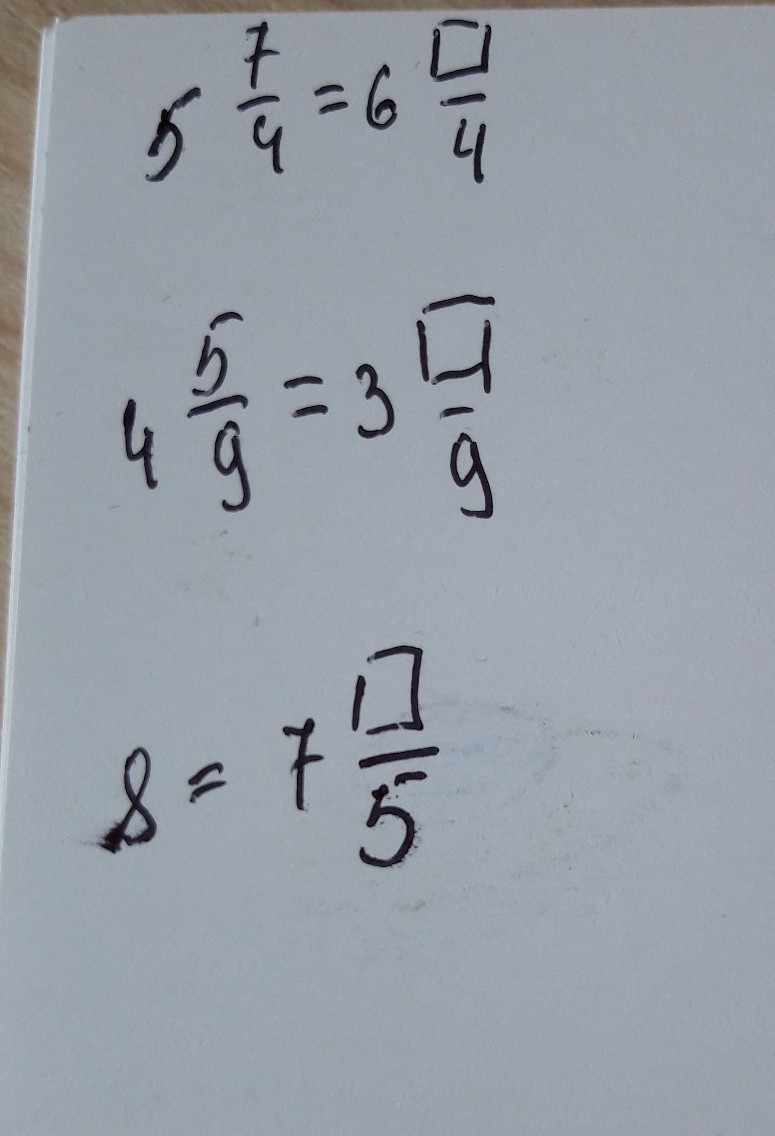 5 7/4 = 6 □/4
4 5/9 = 3 □/9
8 = 7 □/5